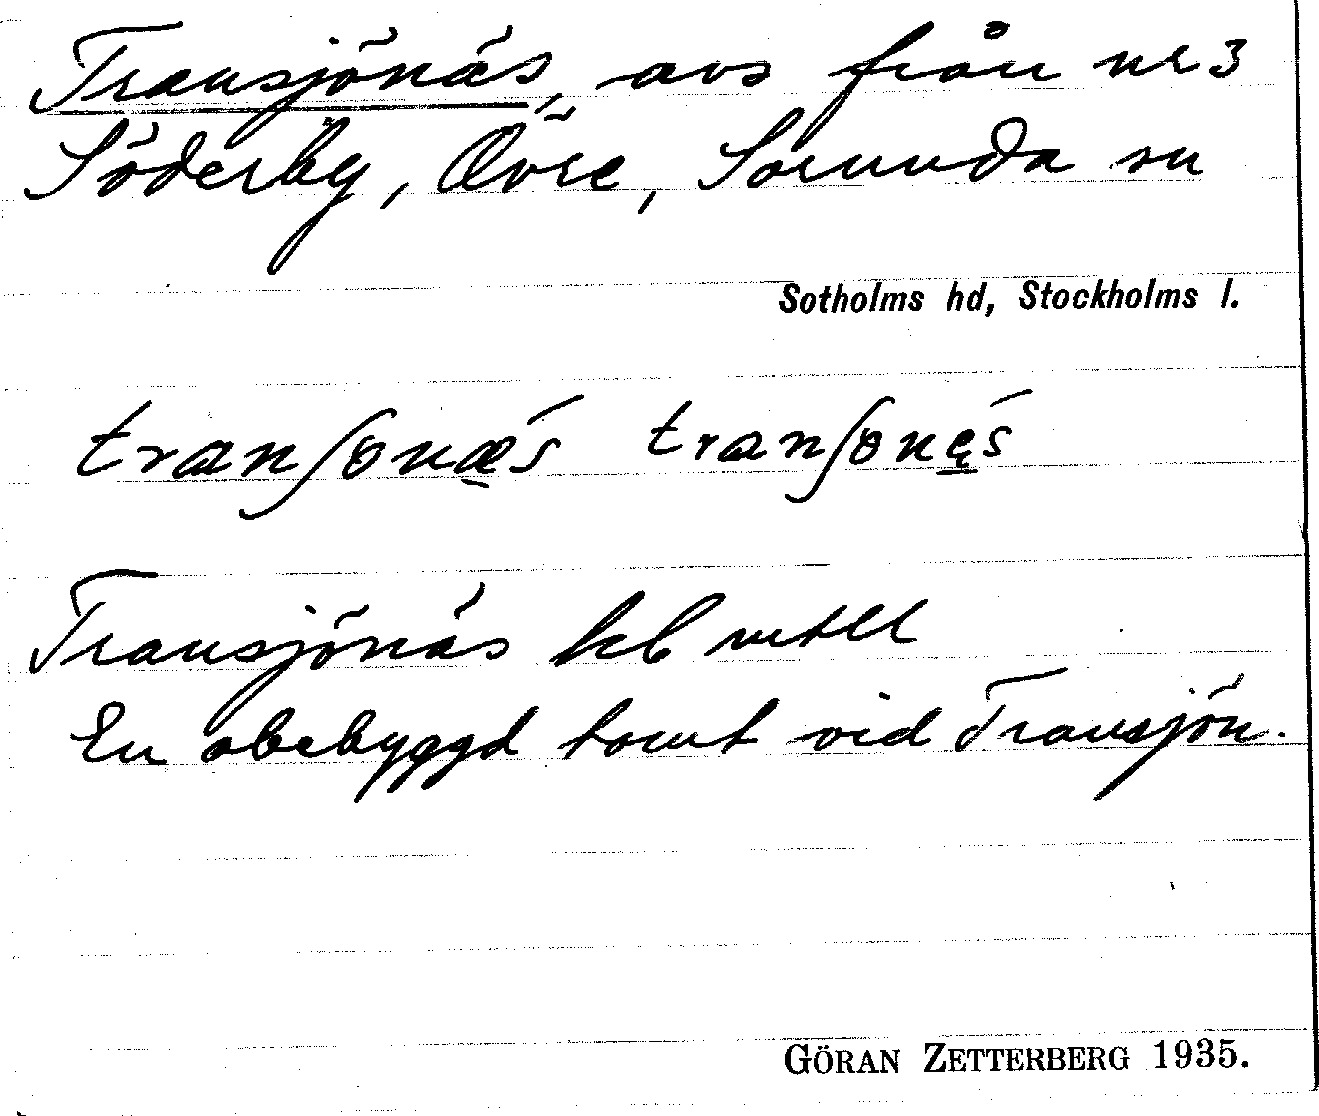 Transjönäs, avs från nr 3
Söderby, Övre, Sorunda sn
Sotholms hd, Stockholms l.
tranʃonǽ̱s tranʃoné̱s
Transjönäs
En obebyggd tomt vid Transjön.
GÖRAN ZETTERBERG 1935.